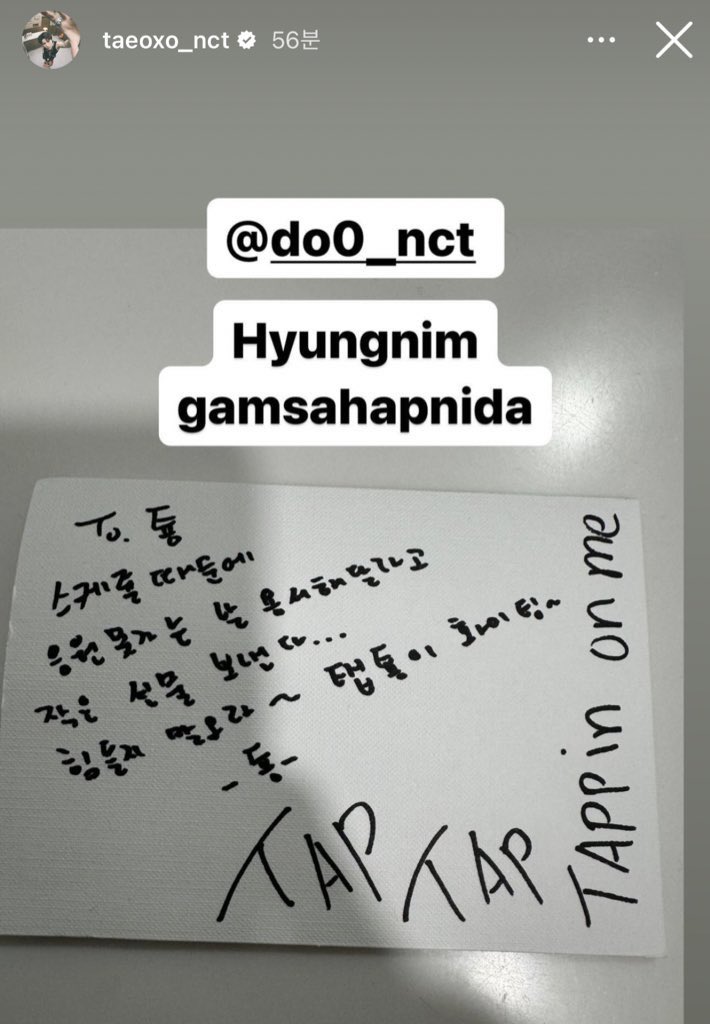 taeoxo_nct 56분
@do0_nct
Hyungnim
gamsahapnida
To. 툥
스케줄 때문에
응원 못가는 날 용서해달라고
작은 선물 보낸다...
힘들지 말오라~ 탭툥이 화이팅~
-동-
TAP TAP
TAPPin on me